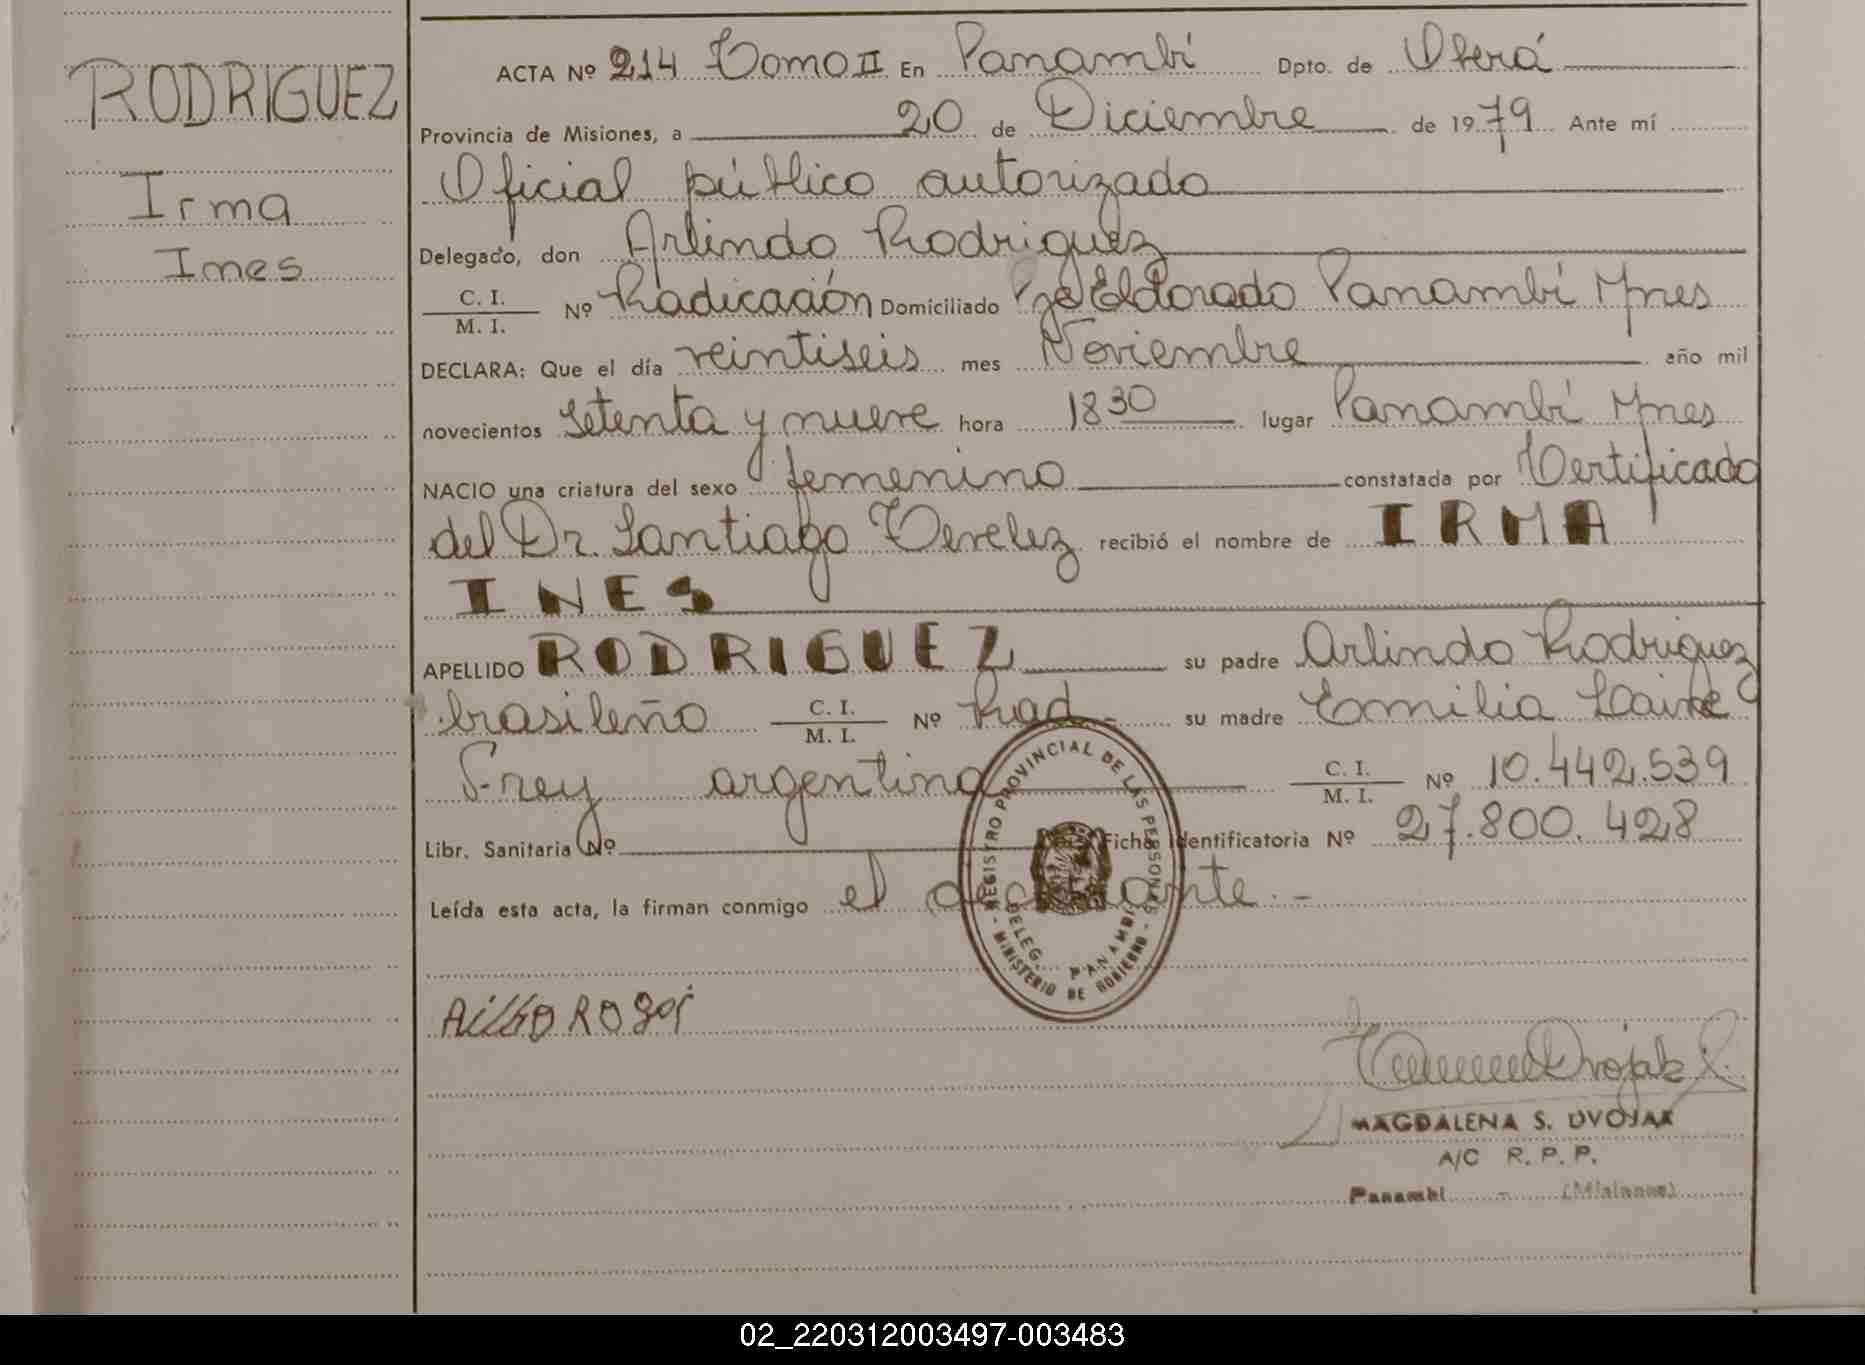 RODRIGUEZ
Irma
Ines
ACTA Nº 214 Tomo II En Panambí Dpto. de Oberá
Provincia de Misiones, a 20 de Diciembre de 1979 Ante mí
Oficial público autorizado
Delegado, don Arlindo Rodriguez
C. I.
M. I. Nº Radicación Domiciliado Pje Eldorado Panambí Mnes
DECLARA: Que el día veintiseis mes Noviembre año mil
novecientos setenta y nueve hora 18 30 lugar Panambí Mnes
NACIO una criatura del sexo femenino constatada por Certificado
del Dr. Santiago recibió el nombre de IRMA
INES
APELLIDO RODRIGUEZ su padre Arlindo Rodriguez
brasileño C. I.
M. I. Nº Rad.- su madre Emilia
Frey argentina C. I.
M. I. Nº 10.442.539
Libr. Sanitaria Nº Ficha identificatoria Nº 27.800.428
Leída esta acta, la firman conmigo el declarante.-
REGISTRO PROVINCIAL DE LAS PERSONAS
DELEG. PANAMBI
- MINISTERIO DE GOBIERNO -
MAGDALENA S. DVOJAK
A/C R. P. P.
Panambí - (Misiones)
02_220312003497-003483